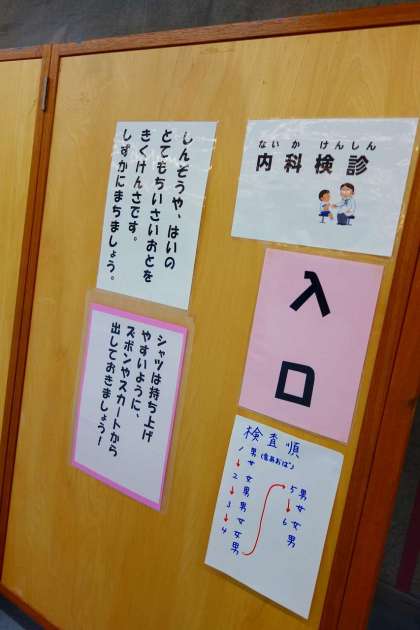 ないか けんしん
内科検診
入口
しんぞうや、はいの
とてもちいさいおとを
きくけんさです。
しずかにまちましょう。
シャツは持ち上げ
やすいように、
ズボンやスカートから
出しておきましょう!
検査順
1 男
女
2 女
男
3 男
女
4 女
男
5 男
女
6 女
男